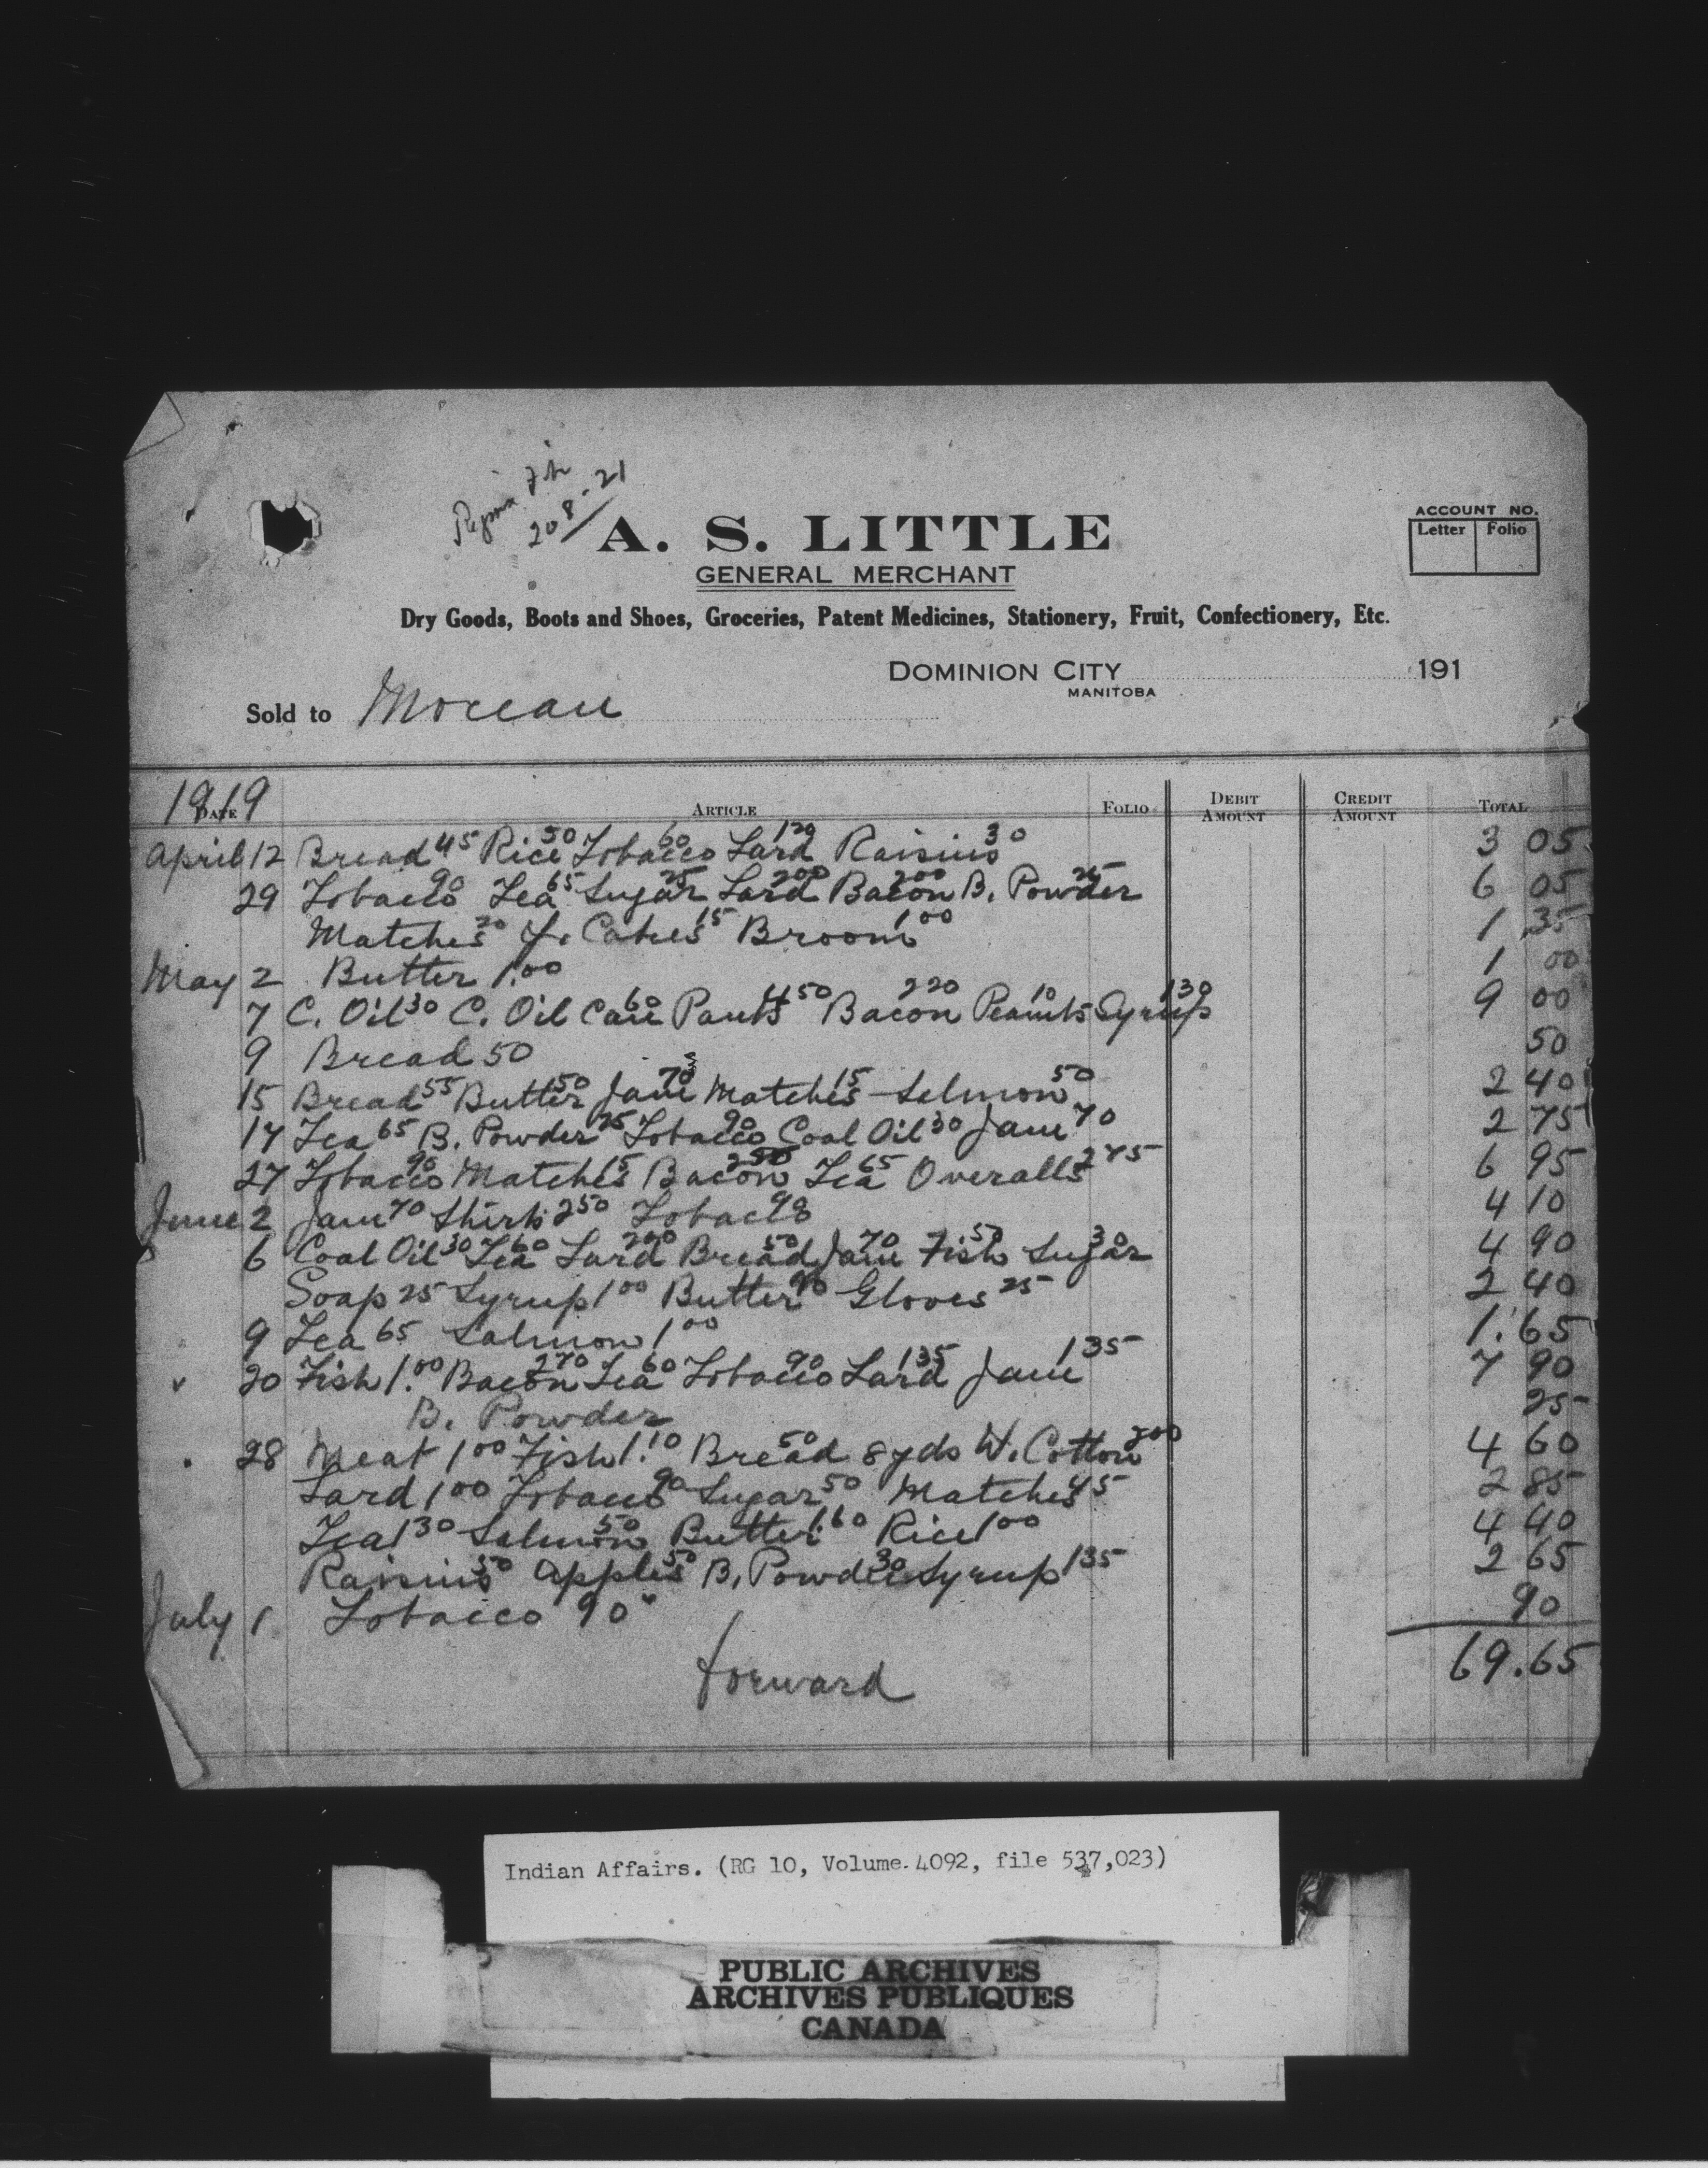 20 8-21
A. S. LITTLE
GENERAL MERCHANT
Dry Goods, Boots and Shoes, Groceries, Patent Medicines, Stationery, Fruit, Confectionery, Etc.
ACCOUNT NO.
Letter Folio
DOMINION CITY 191
MANITOBA
Sold to Moreau
1919
DATE ARTICLE FOLIO DEBIT AMOUNT CREDIT AMOUNT TOTAL
April 12 Bread 45 Rice 50 Tobacco 60 Lard 120 Raisins 30 3 05
29 Tobacco 90 Tea 65 Sugar 25 Lard 200 Bacon 200 B. Powder 25 6 05
Matches 20 Y. Cakes 15 Broom 1 00 1 35
May 2 Butter 1.00 1 00
7 C. Oil 30 C. Oil Can 60 Pants 4 50 Bacon 220 Peanuts 10 Syrup 130 9 00
9 Bread 50 50
15 Bread 55 Butter 50 Jam 70 Matches 15 Salmon 50 2 40
17 Tea 65 B. Powder 25 Tobacco 90 Coal Oil 30 Jam 70 2 75
27 Tobacco 90 Matches 15 Bacon 250 Tea 65 Overalls 275 6 95
June 2 Jam 70 Shirt 250 Tobacco 90 4 10
6 Coal Oil 30 Tea 60 Lard 200 Bread 50 Jam 70 Fish 50 Sugar 30 4 90
Soap 25 Syrup 1 00 Butter 90 Gloves 25 2 40
9 Tea 65 Salmon 1 00 1.65
20 Fish 1.00 Bacon 270 Tea 60 Tobacco 90 Lard 135 Jam 135 7 90
B. Powder 25
28 Meat 1 00 Fish 1.10 Bread 50 8 yds W. Cotton 200 4 60
Lard 1 00 Tobacco 90 Sugar 50 Matches 45 2 85
Tea 1 30 Salmon 50 Butter 1.60 Rice 1 00 4 40
Raisins 50 Apples 50 B. Powder 30 Syrup 135 2 65
July 1 Tobacco 90 90
69.65
forward
Indian Affairs. (RG 10, Volume 4092, file 537,023)
PUBLIC ARCHIVES
ARCHIVES PUBLIQUES
CANADA